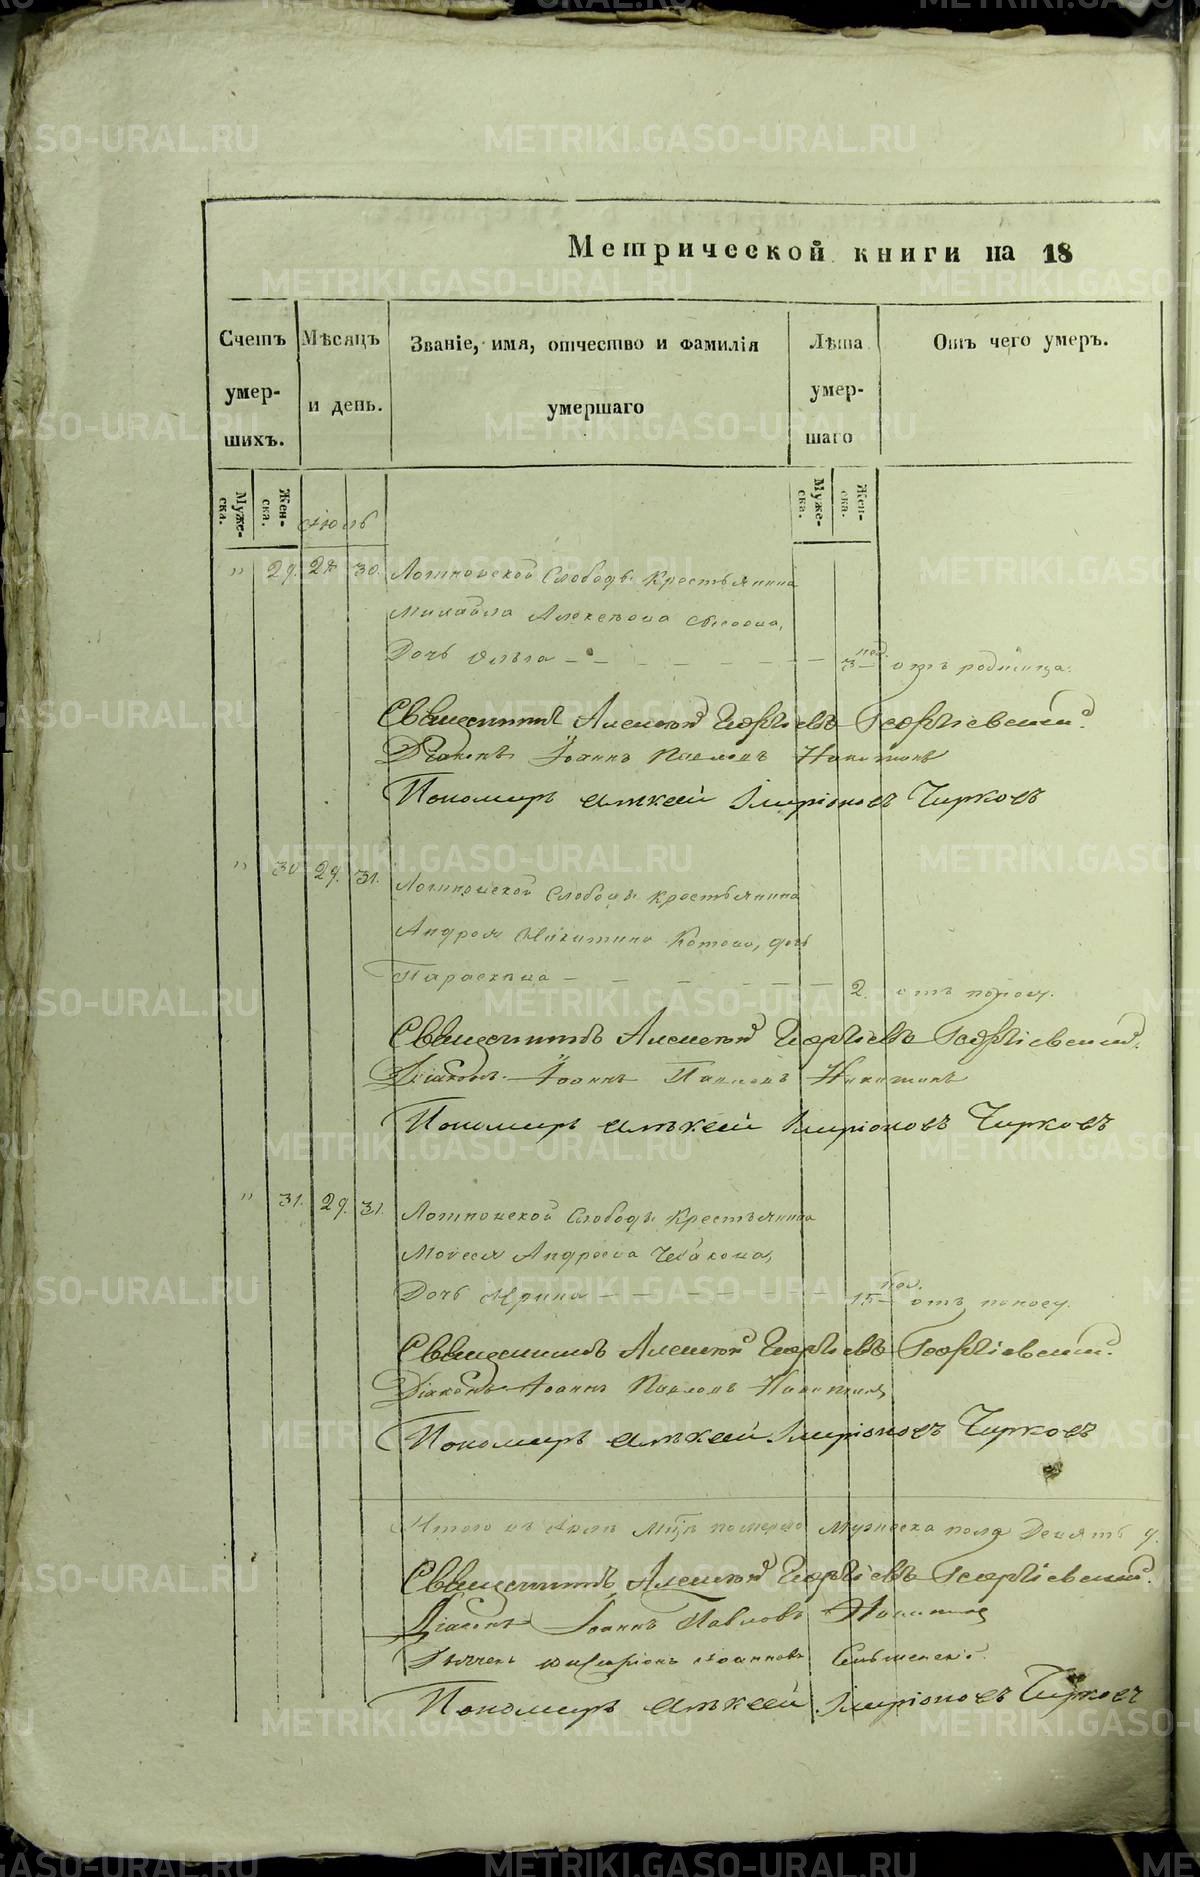 Метрической книги на 18
Счетъ умер-шихъ.
Мѣсяцъ и день.
Званіе, имя, отчество и фамилія умершаго
Лѣта умер-шаго
Отъ чего умеръ.
Муже-ска.
Жен-ска.
Муже-ска.
Жен-ска.
Июль
" 29. 28 30. Слободы Крестьянина
Михаила Алексѣева
Дочь Ольга — — — — — — 3 нед. отъ родимца.
Священникъ Алексѣй Георгіевъ Георгіевскій.
Діаконъ Іоаннъ Павловъ Никитинъ
Пономарь Алексѣй Иларіоновъ Чирковъ
" 30 29. 31. Слободы крестьянина
Андрея Никитина Котова, дочь
Параскева — — — — — — 2. отъ поносу.
Священникъ Алексѣй Георгіевъ Георгіевскій.
Діаконъ Іоаннъ Павловъ Никитинъ
Пономарь Алексѣй Иларіоновъ Чирковъ
" 31. 29. 31. Слободы Крестьянина
Моисея Андреева
Дочь Ирина — — — — — — 15 нед. отъ поносу.
Священникъ Алексѣй Георгіевъ Георгіевскій.
Діаконъ Іоаннъ Павловъ Никитинъ
Пономарь Алексѣй Иларіоновъ Чирковъ
Итого въ Июлѣ Мцѣ померло Мужеска пола Девять 9.
Священникъ Алексѣй Георгіевъ Георгіевскій.
Діаконъ Іоаннъ Павловъ Никитинъ
Іоанновъ
Пономарь Алексѣй Иларіоновъ Чирковъ
METRIKI.GASO-URAL.RU